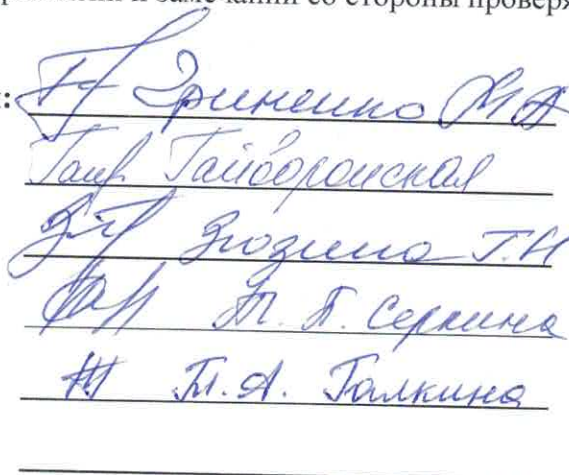 и замечаний со стороны проверя
Гриненко М А
Гайворонская
Зюзина Г.Н
Т. П. Серкина
Т.А. Галкина